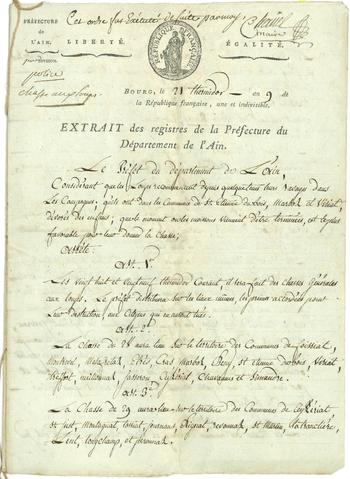 Cet ordre fus Exécuté de suite par moy
maire
PRÉFECTURE
DE
L'AIN.
LIBERTÉ.
RÉPUBLIQUE FRANÇAISE
ÉGALITÉ.
division.
police
chasse aux loups
BOURG, le 21 thermidor en 9 de
la République française, une et indivisible.
EXTRAIT des registres de la Préfecture du
Département de l'Ain.
Le Préfet du département de L'ain,
Considérant que les Loups recommencent depuis quelques tems leurs ravages dans
Les Campagnes, qu'ils ont dans les Communes de St Etienne dubois, Marboz et Vériat,
dévorés des enfans; que le moment ou les moissons viennent d'être terminées, est le plus
favorable pour leur donner la chasse;
arrête:
art. 1er
Les vingt huit et vingt neuf thermidor Courant, il sera fait des chasses Générales
aux loups. Le préfet distribuera sur les lieux mêmes, les primes accordées pour
Leur destruction, aux Citoyens qui en auront tués.
art. 2e
La Chasse du 28 aura lieu sur le territoire des Communes de
Montreval, Marboz, Beny, St Etienne dubois, Vériat,
Treffort, meillonnas, Jasseron, Ceyzériat, Chavannes et Simandre.
art. 3e
La Chasse du 29 aura lieu sur le territoire des Communes de Ceyzériat
St just, Montagnat, tossiat, journans, Revonnas, St Martin,
Lent, longchamp, et